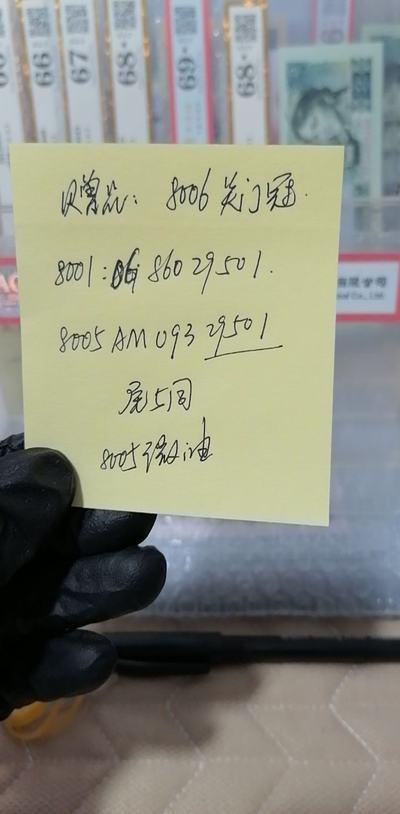 66
67
68
69
68
8006 关门冠.
8001: 86029501.
8005 AM 093 29501
尾5同
8005 微油
有限公司
Co., Ltd.